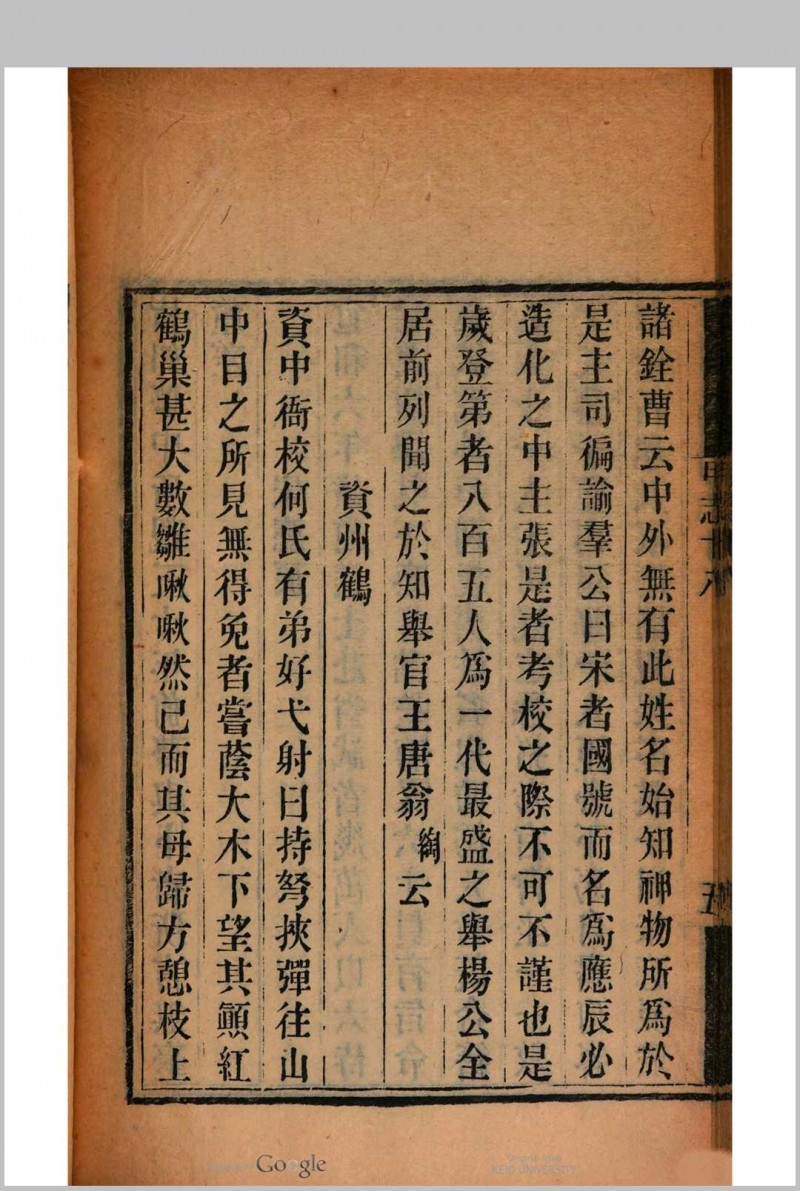 甲志十八
五
諸銓曹云中外無有此姓名始知神物所爲於
是主司徧諭羣公曰宋者國號而名爲應辰必
造化之中主張是者考校之際不可不謹也是
歲登第者八百五人爲一代最盛之舉楊公全
居前列聞之於知舉官王唐翁綯云
資州鶴
資中衙校何氏有弟好弋射日持弩挾彈往山
中目之所見無得免者嘗蔭大木下望其顚紅
鶴巢甚大數雛啾啾然已而其母歸方憩枝上
Google
KEIO UNIVERSITY